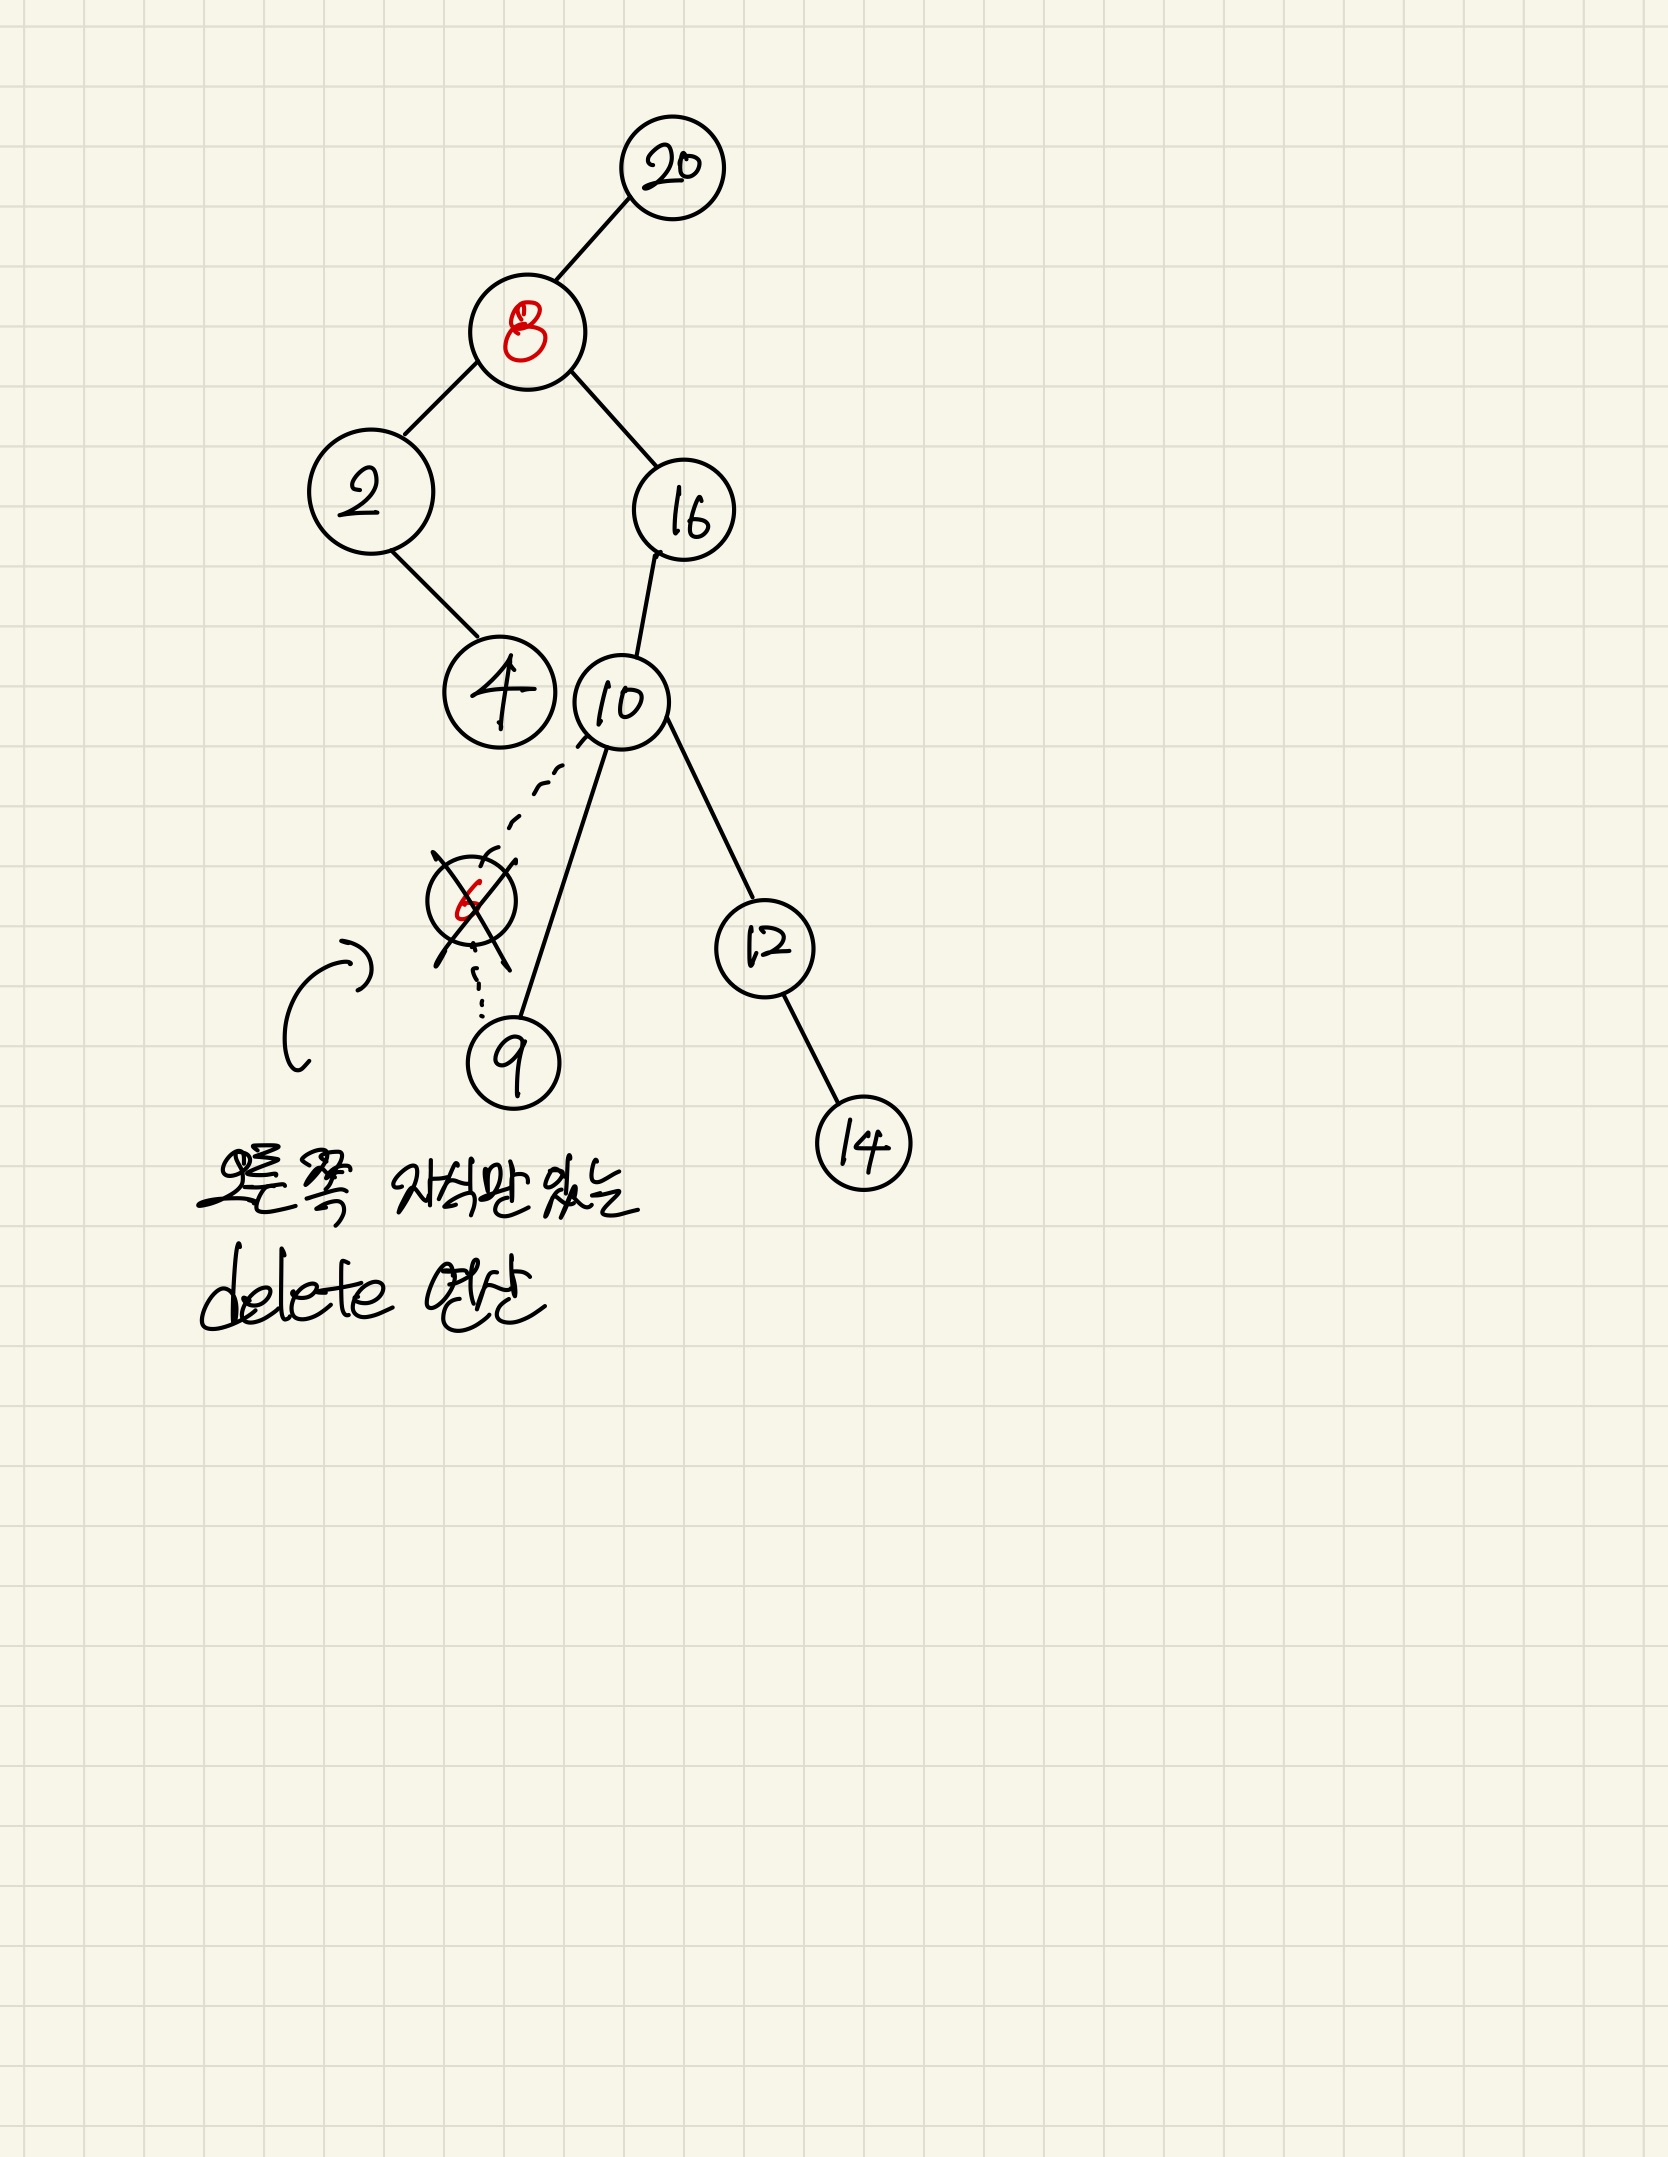 20
8
2
16
4
10
6
12
9
14
오른쪽 자식만 있는
delete 연산